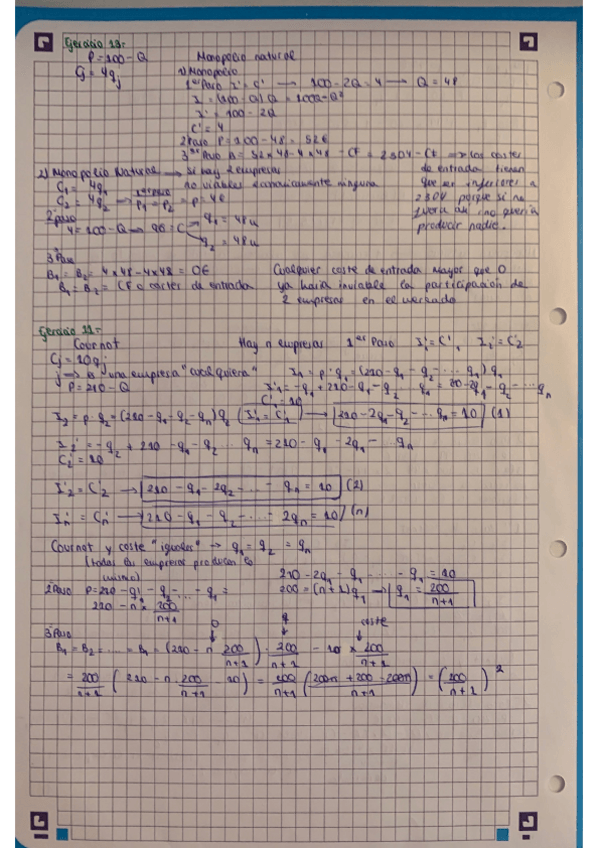 Ejercicio 13:
P = 100 - Q Monopolio natural
Cj = 4qj 1) Monopolio
1er Paso I' = C' → 100 - 2Q = 4 → Q = 48
I = (100 - Q) Q = 100Q - Q²
I' = 100 - 2Q
C' = 4
2º Paso P = 100 - 48 = 52€
3er Paso B = 52 x 48 - 4 x 48 - CF = 2304 - CF → Los costes
de entrada tienen
que ser inferiores a
2304 porque si no
fuera así no querría
producir nadie.
2) Monopolio Natural → Si hay 2 empresas
no viables económicamente ninguna
C1 = 4q1
C2 = 4q2 1er Paso P1 = P2 = p = 4€
2º paso
4 = 100 - Q → 96 = Q q1 = 48u
q2 = 48u
3er Paso
B1 = B2 = 4 x 48 - 4 x 48 = 0€
B1 = B2 = CF o costes de entrada
Cualquier coste de entrada mayor que 0
ya haría inviable la participación de
2 empresas en el mercado
Ejercicio 11:
Cournot Hay n empresas 1er Paso I'1 = C'1 I'2 = C'2
Cj = 10qj
j → a "una empresa "cualquiera"
P = 210 - Q
I1 = p · q1 = (210 - q1 - q2 - ... q1) q1
C'1 = 10
I2 = p · q2 = (210 - q1 - q2 - qn) q2 (I'1 = C'1) → 210 - 2q1 - q2 - ... qn = 10 (1)
I2' = -q2 + 210 - q1 - q2 ... qn = 210 - q1 - 2q2 - ... qn
C2' = 10
I'2 = C'2 → 210 - q1 - 2q2 - ... - qn = 10 (2)
I'n = C'n → 210 - q1 - q2 - ... - 2qn = 10 (n)
Cournot y coste "iguales" → q1 = q2 = qn
(todas las empresas producen lo
mismo)
210 - 2q1 - q1 - ... - q1 = 10
200 = (n+1)q1 → q1 = 200/(n+1)
2º Paso P = 210 - q1 - q2 - ... - q1 =
210 - n x 200/(n+1)
3er Paso
coste
B1 = B2 = ... = B1 = (210 - n 200/(n+1)) · 200/(n+1) - 10 x 200/(n+1)
= 200/(n+1) (210 - n · 200/(n+1) - 10) = 200/(n+1) ((200n + 200 - 200n)/(n+1)) = (200/(n+1))²